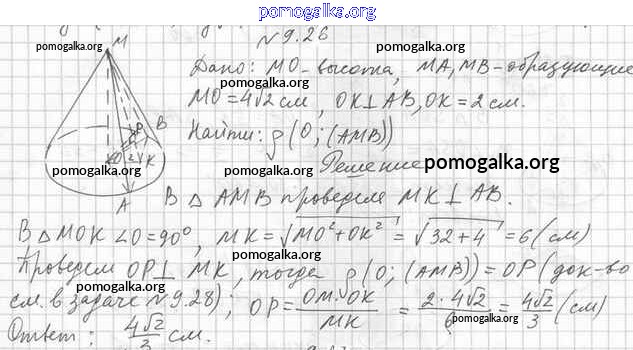 pomogalka.org
№ 9.26
pomogalka.org
pomogalka.org
M
Дано: MO-высота, MA, MB-образующие
pomogalka.org
MO=4√2 см, OK⊥AB, OK=2см.
B
Найти: ρ(O; (AMB))
P
O 2 K
pomogalka.org
pomogalka.org
Решение
pomogalka.org
A
В △ AMB проведем MK⊥ AB.
В △ MOK ∠O=90°, MK=√MO²+OK² = √32+4 = 6(см)
Проведем OP⊥ MK, тогда ρ(O; (AMB)) = OP (док-во
pomogalka.org
pomogalka.org
см. в задаче №9.28); OP = OM·OK/MK = 2·4√2/6 = 4√2/3 (см)
pomogalka.org
Ответ: 4√2/3 см.
pomogalka.org